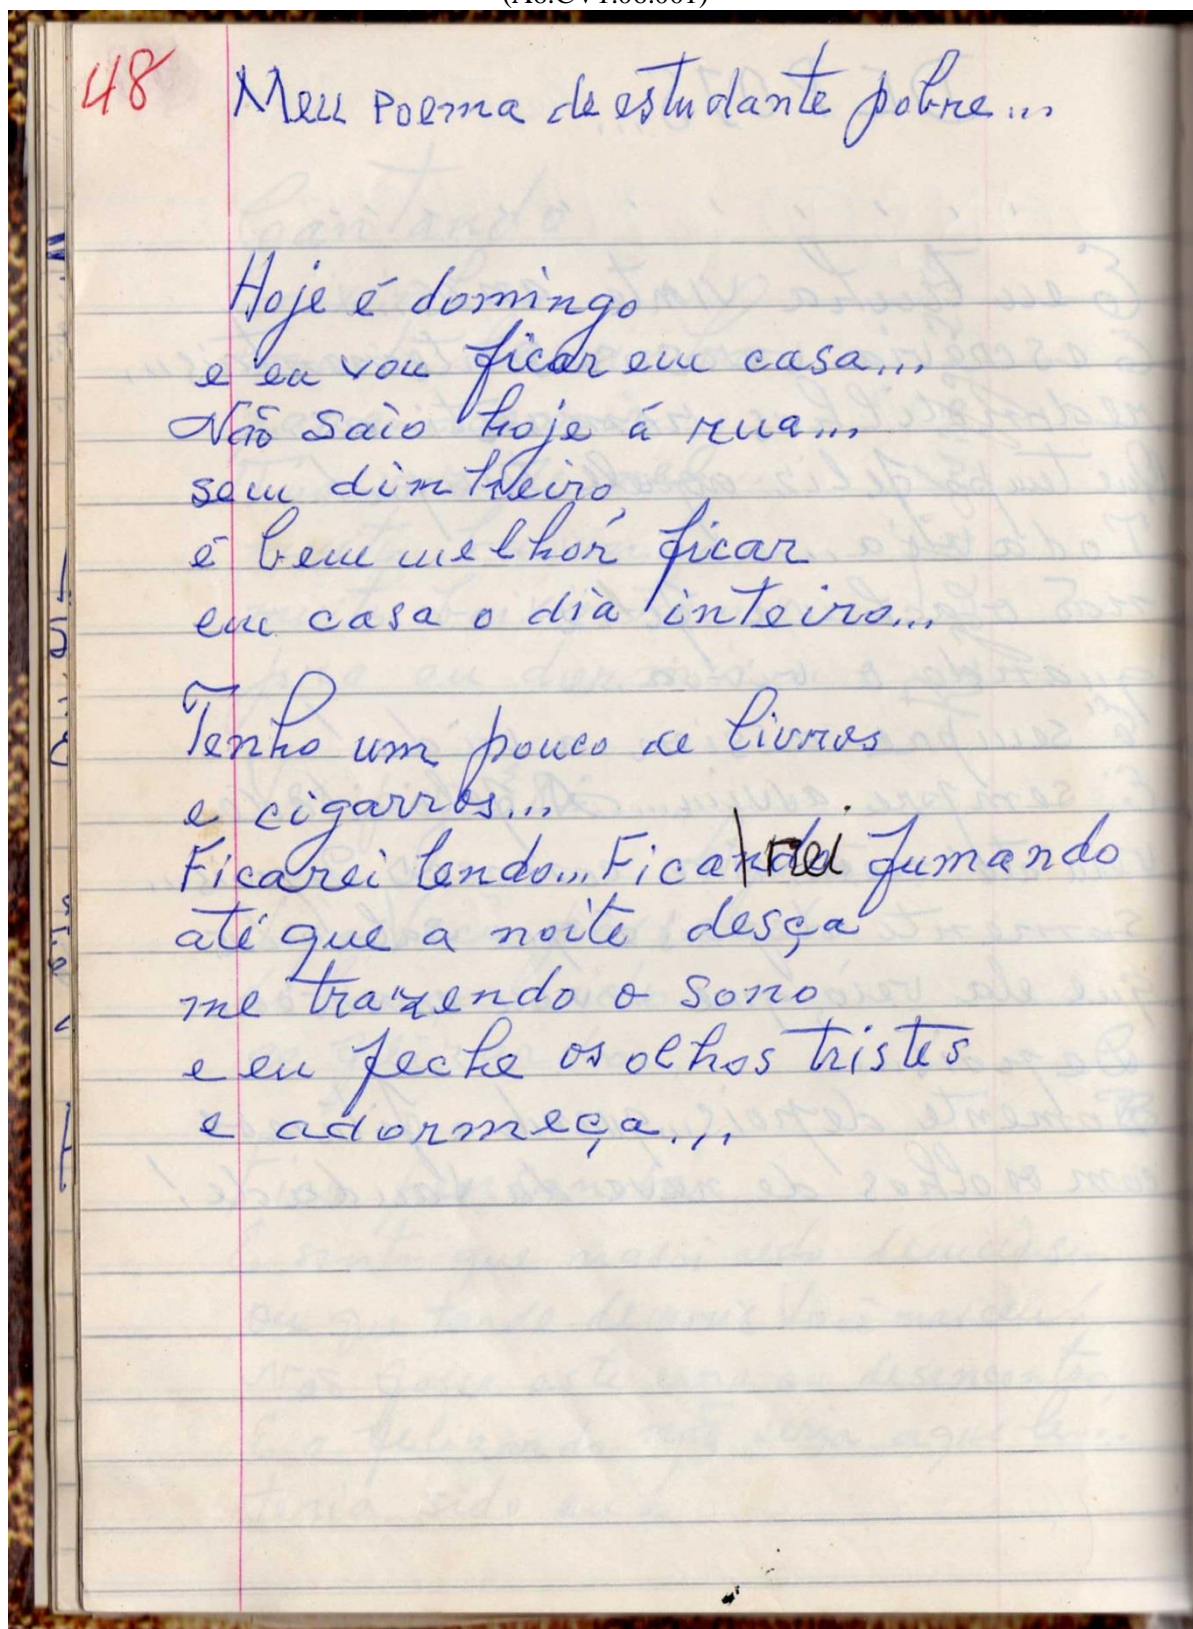 48
Meu poema de estudante pobre...
Hoje é domingo
e eu vou ficar em casa...
Não saio hoje á rua...
sem dinheiro,
é bem melhor ficar
em casa o dia inteiro...
Tenho um pouco de livros
e cigarros...
Ficarei lendo... Ficarei fumando
até que a noite desça
me trazendo o sono
e eu feche os olhos tristes
e adormeça...